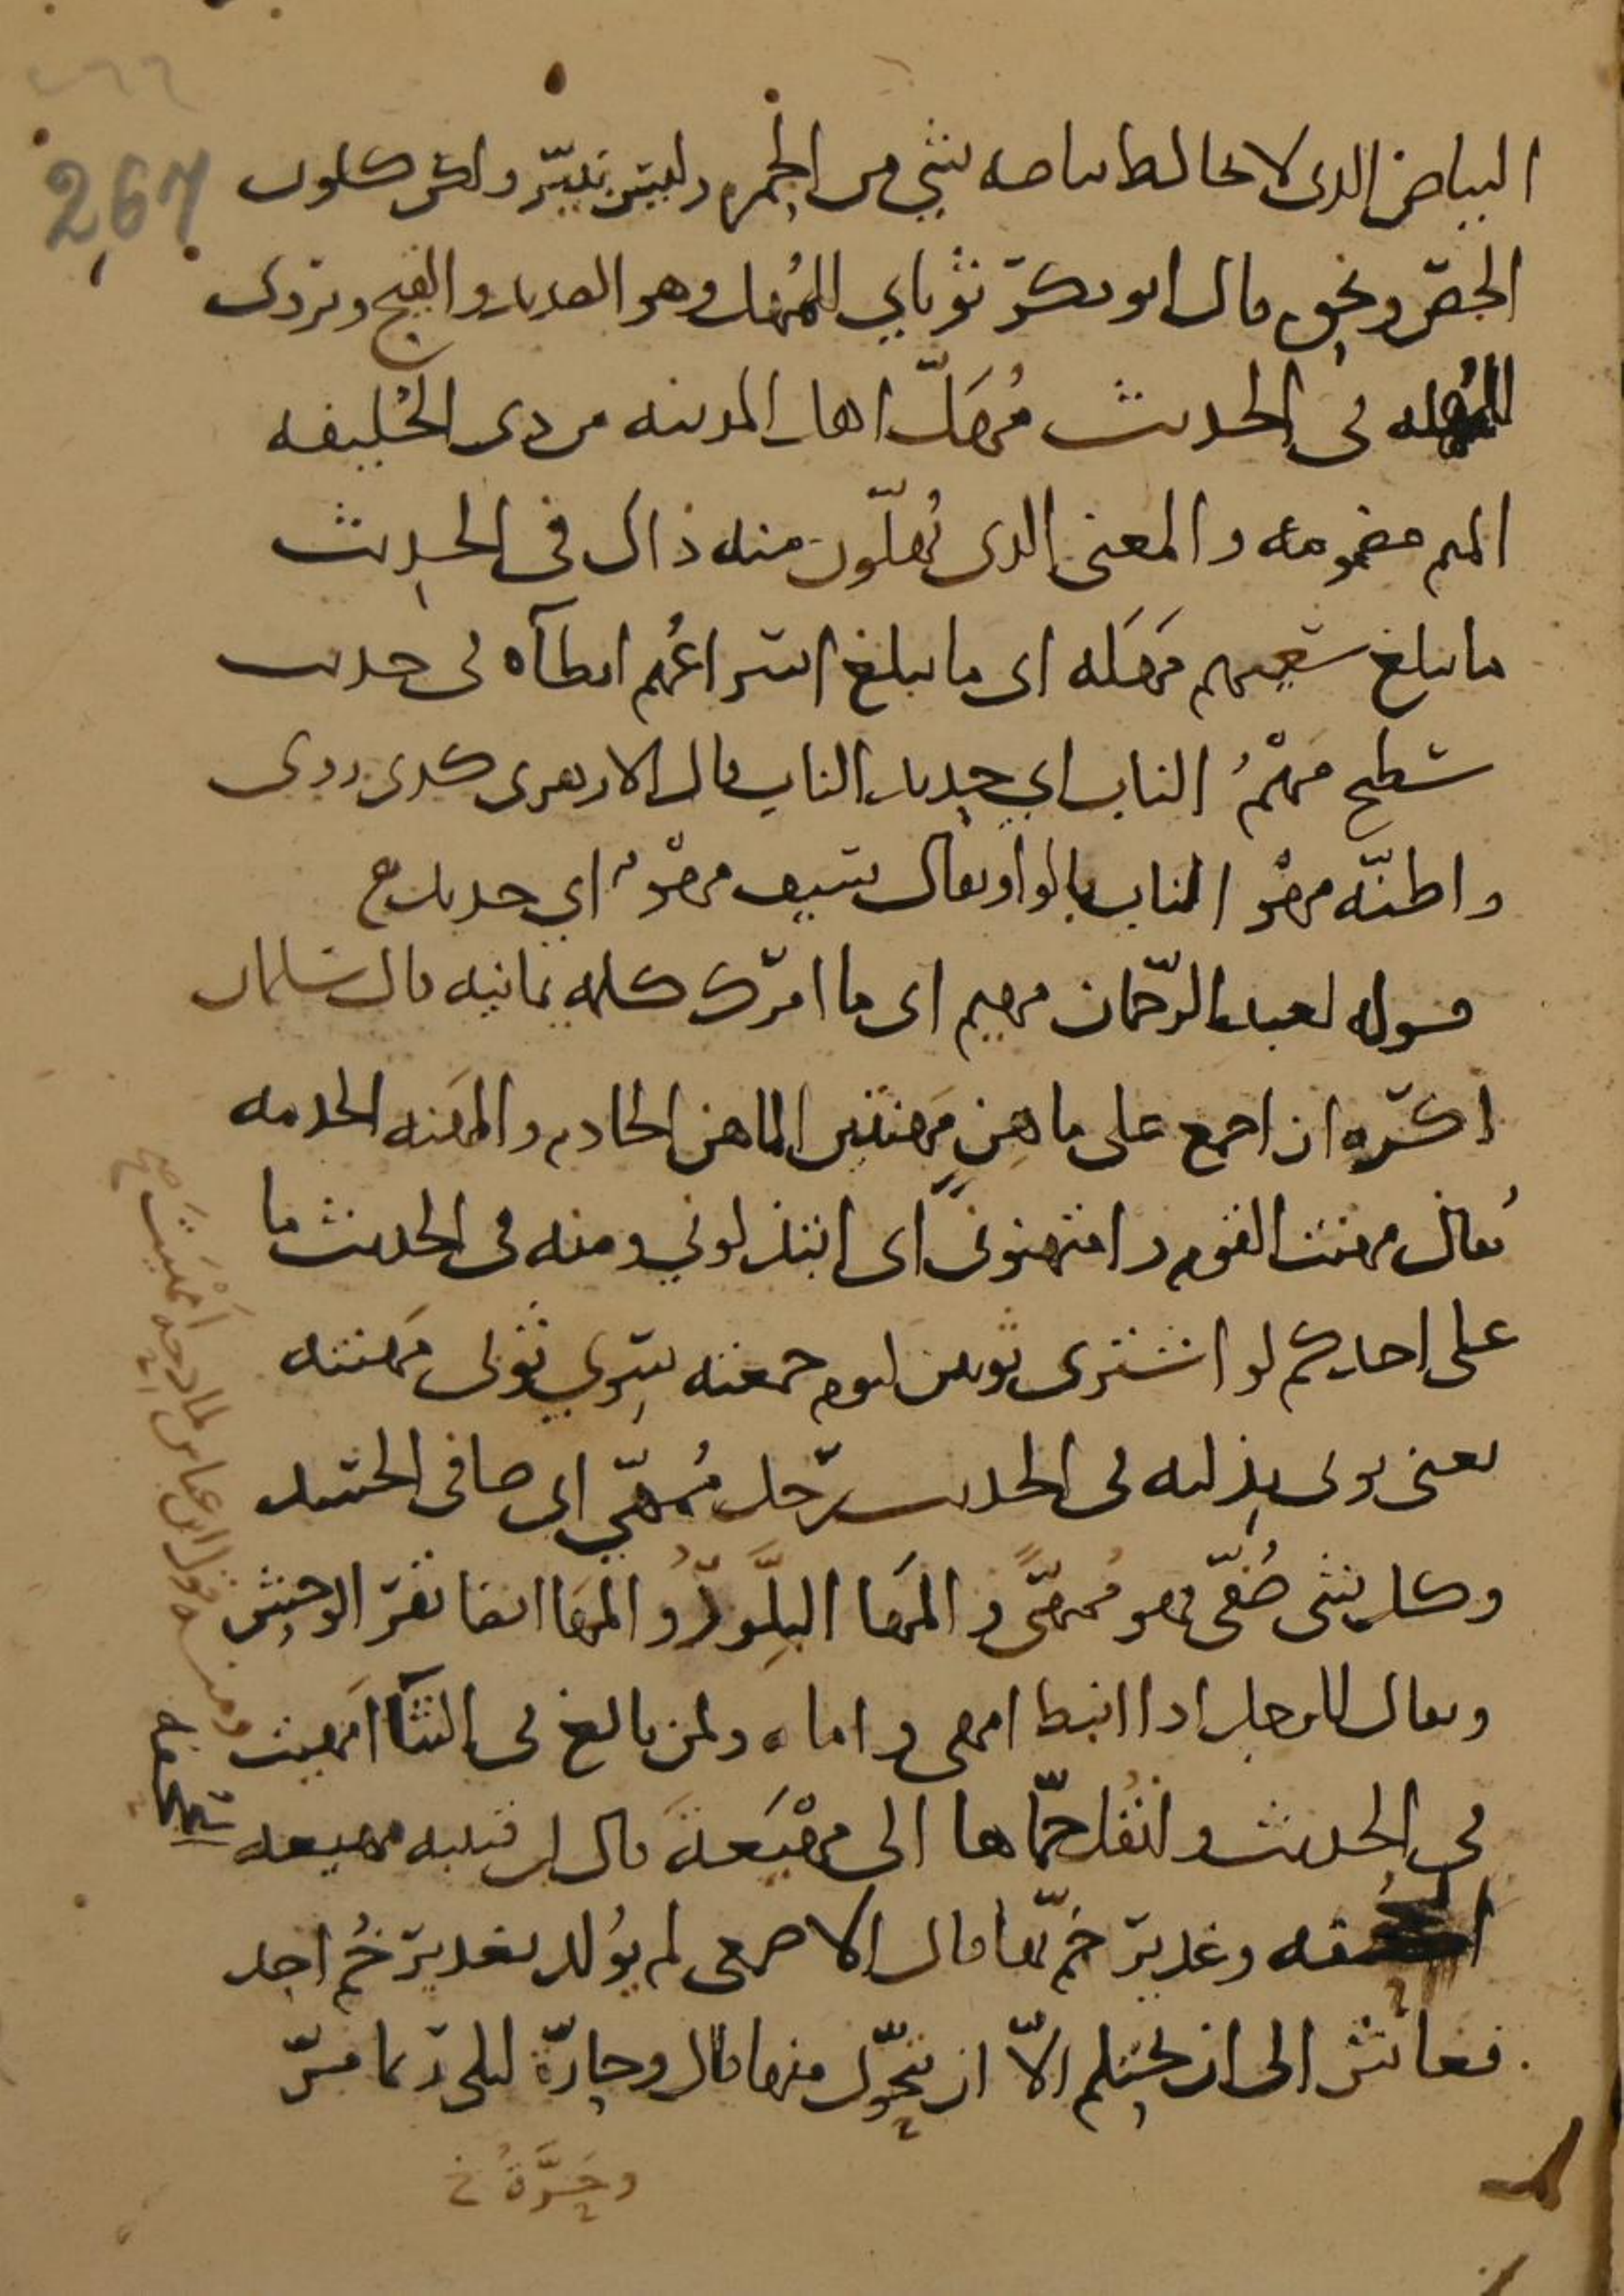 267
البياض الذى لا يخالط بياضه شي من الحمره وليس بنير ولكن كلون
الجص ونحوه قال ابو بكر ثوباي للمهل وهو الصديد والقيح ويروى
للمهله فى الحديث مُهَلّ اهل المدينه من ذى الحُليفه
الميم مضمومه والمعنى الذى يُهلّون منه ذاك فى الحديث
ما يبلغ سعيهم مَهَله اى ما يبلغ اسراعُهم ابطآه فى حديث
سطيح مَهْمُ الناب اي حديد الناب قال الازهرى كذى روى
واظنّه مهْو الناب بالواو يقال سيف مهْوٌ اي حديد
قوله لعبد الرّحمان مهيم اى ما امرك كلمه يمانيه قال سلمان
اكره ان اجمع على ماهِنٍ مَهنتين الماهن الخادم والمَهنه الخدمه
يُقال مهنت القوم وامتهنونى اى ابتذلوني ومنه فى الحديث ما
على احدكم لو اشترى ثوبين ليوم جمعته سوي ثوبى مَهنته
يعنى ثوبى بذلته فى الحديث رجل مُمهّي اى صافى الجسد
وكل شى صُفّى فهو مُمهّى والمَها البِلَّوْرُ والمَها ايضا بقر الوحش
ويقال للرجل اذا انبط امهى واماه ولمن بالغ فى الثنآ امهيت
ومنه قول ابن عباس لمادحه أمْهَيتَ صح
فى الحديث وانقل حمّاها الى مهْيَعةَ قال ابن قتيبه مهيعه
الجُحفه وغدير خم بها قال الاصمعى لم يُولد بغدير خُم احد
فعاش الى ان يحتلم الاّ ان يتحوّل منها قال وحارّة ليلى ربما مرّ
وحَرَّةُ خ